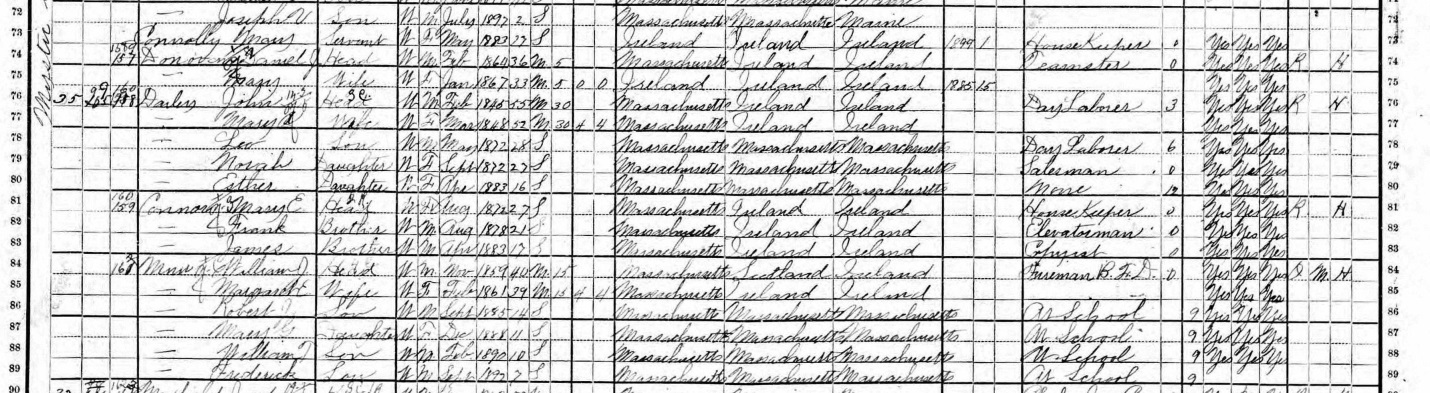 72 — Joseph V Son W M July 1897 2 S Massachusetts Massachusetts Maine
73 Connolly Mary Servant W F May 1883 S Ireland Ireland Ireland 1899 1 House Keeper 0 Yes Yes Yes 73
74 157 Donovan Daniel J Head W M Feb 1864 36 M 5 Massachusetts Ireland Ireland Teamster 0 Yes Yes Yes R H 74
75 — Mary Wife W F Jan 1867 33 M 5 0 0 Ireland Ireland Ireland 1885 15 Yes Yes Yes 75
76 35 Dailey John Head W M Feb 1845 55 M 30 Massachusetts Ireland Ireland Day Laborer 3 Yes Yes Yes R H 76
77 — Mary A Wife W F Mar 1848 52 M 30 4 4 Massachusetts Ireland Ireland Yes Yes Yes 77
78 — Leo Son W M May 1872 28 S Massachusetts Massachusetts Massachusetts Day Laborer 6 Yes Yes Yes 78
79 — Norah Daughter W F Sept 1872 27 S Massachusetts Massachusetts Massachusetts Salesman 0 Yes Yes Yes 79
80 — Esther Daughter W F Apr 1883 16 S Massachusetts Massachusetts Massachusetts None 12 Yes Yes Yes 80
81 160 159 Connors Mary E Head W F Aug 1872 27 S Massachusetts Ireland Ireland House Keeper 0 Yes Yes Yes R H 81
82 — Frank Brother W M Aug 1878 21 S Massachusetts Ireland Ireland Elevatorman 0 Yes Yes Yes 82
83 — James Brother W M Abr 1882 17 S Massachusetts Ireland Ireland Copyist 0 Yes Yes Yes 83
84 William J Head W M Nov 1859 40 M 15 Massachusetts Scotland Ireland Fireman B. F. D. 0 Yes Yes Yes O M H 84
85 — Margaret Wife W F Feb 1861 39 M 15 4 4 Massachusetts Ireland Ireland Yes Yes Yes 85
86 — Robert Son W M Sept 1885 14 S Massachusetts Massachusetts Massachusetts At School 9 Yes Yes Yes 86
87 — Mary G Daughter W F Dec 1888 11 S Massachusetts Massachusetts Massachusetts At School 9 Yes Yes Yes 87
88 — William J Son W M Feb 1890 10 S Massachusetts Massachusetts Massachusetts At School 9 Yes Yes Yes 88
89 — Frederick Son W M Sept 1892 7 S Massachusetts Massachusetts Massachusetts At School 9 89
90